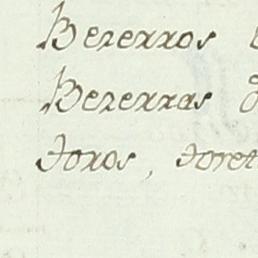 Bezerros
Bezerras
Toros, toret